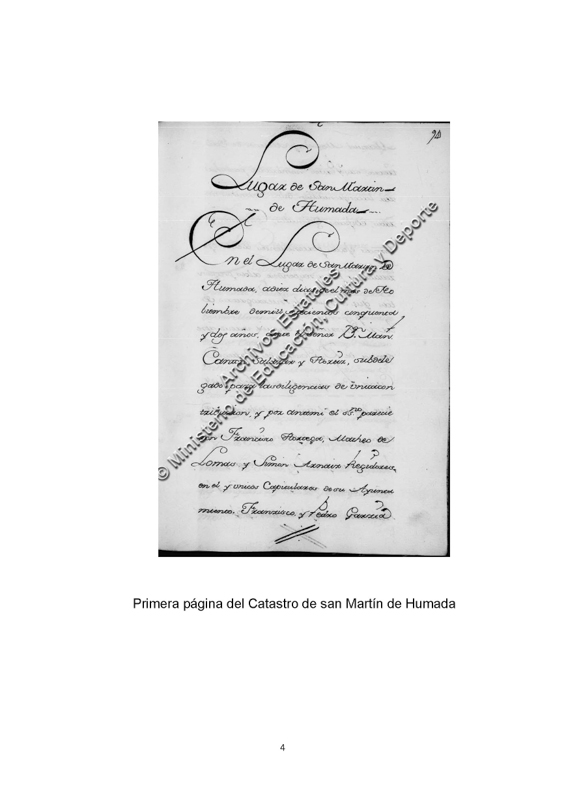 90
Lugar de San Martin
de Humada
En el Lugar de San Martin de
Humada, a diez dias del mes de No
biembre de mill setecientos cinquenta
y dos años, ante el señor Dn. Juan
y Pereda, subdele
gado para las diligencias de unica con
tribuzion, y por ante mi el ssno. parecie
ron Francisco Hortega, Matheo de
Lomas y Simon Arnaiz Rexidores,
en el y unicos Capitulares de su Ayunta
miento. Francisco y Pedro Garzia
© Ministerio de Educación, Cultura y Deporte
Archivos Estatales
Primera página del Catastro de san Martín de Humada
4